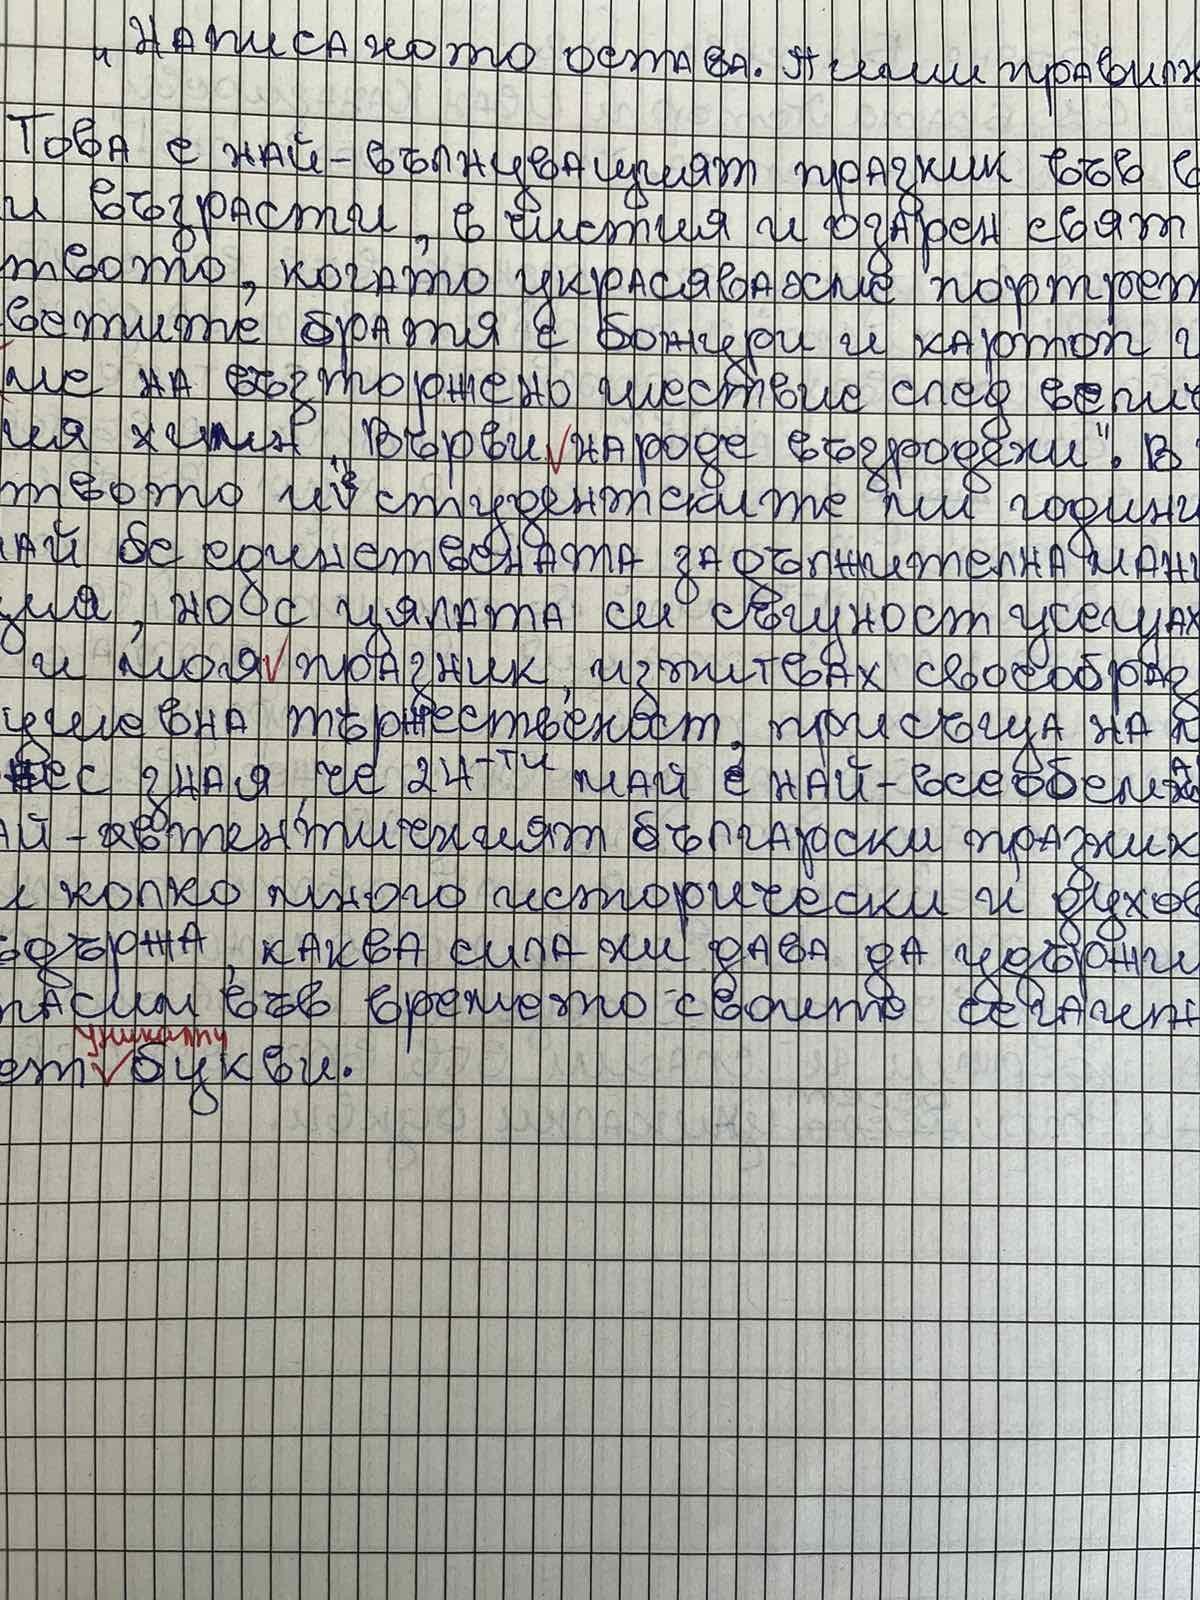 „Написаното остава. Пиши правилн
Това е най-вълнуващият празник във в
и възрасти, в чистия и озарен свят
твото, когато украсявахме портрет
ветите братя с божури и картон и
ме на възторжено шествие след велич
ия химн „Върви √ народе възродени". В
твото и в студентските ми години
май бе единствената задължителна мани
ция, но с цялата си същност усещах
и моя √ празник, изпитвах своеобраз
ушевна тържественост, присъща на п
нес зная, че 24-ти май е най-всеобемa
ай-автентичният български празник
и колко много исторически и духов
одържа, каква сила ни дава да удържи
пасим във времето своите сегашн
уникални
ет √ букви.